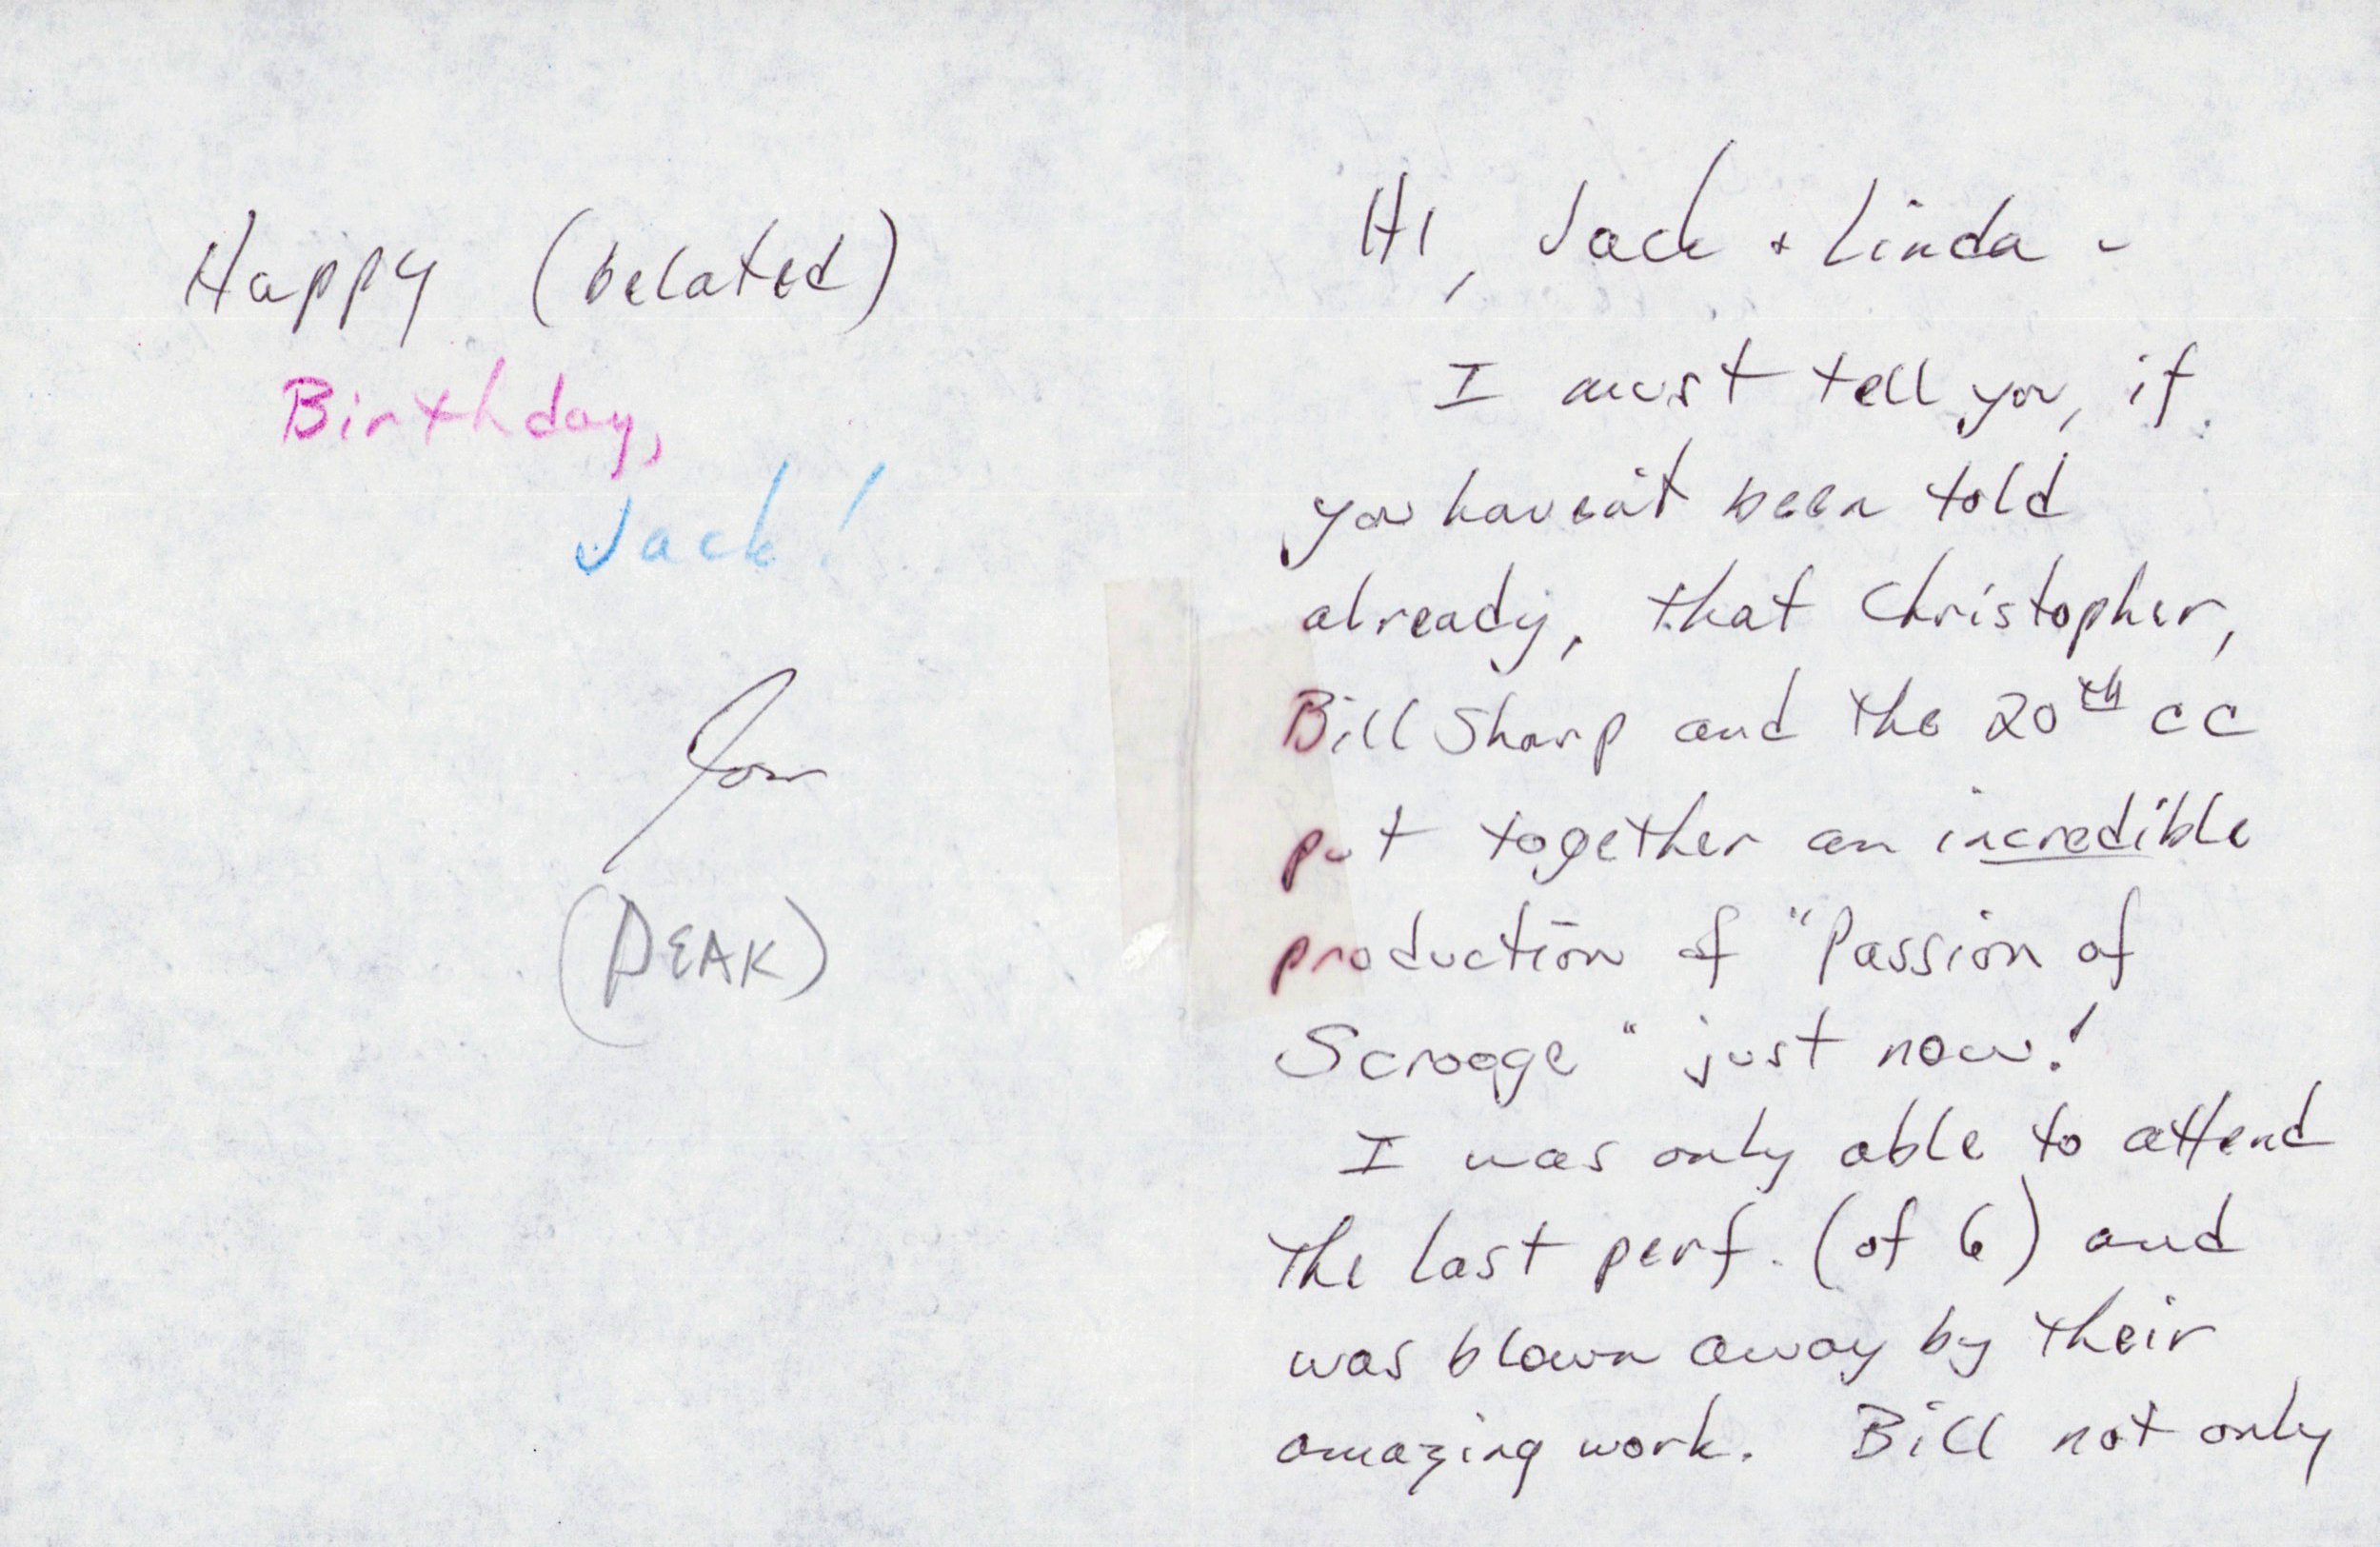 Happy (belated)
Birthday,
Jack!
(DEAK)
Hi, Jack + Linda -
I must tell you, if
you haven't been told
already, that Christopher,
Bill Sharp and the 20th CC
put together an incredible
production of "Passion of
Scrooge" just now!
I was only able to attend
the last perf. (of 6) and
was blown away by their
amazing work. Bill not only